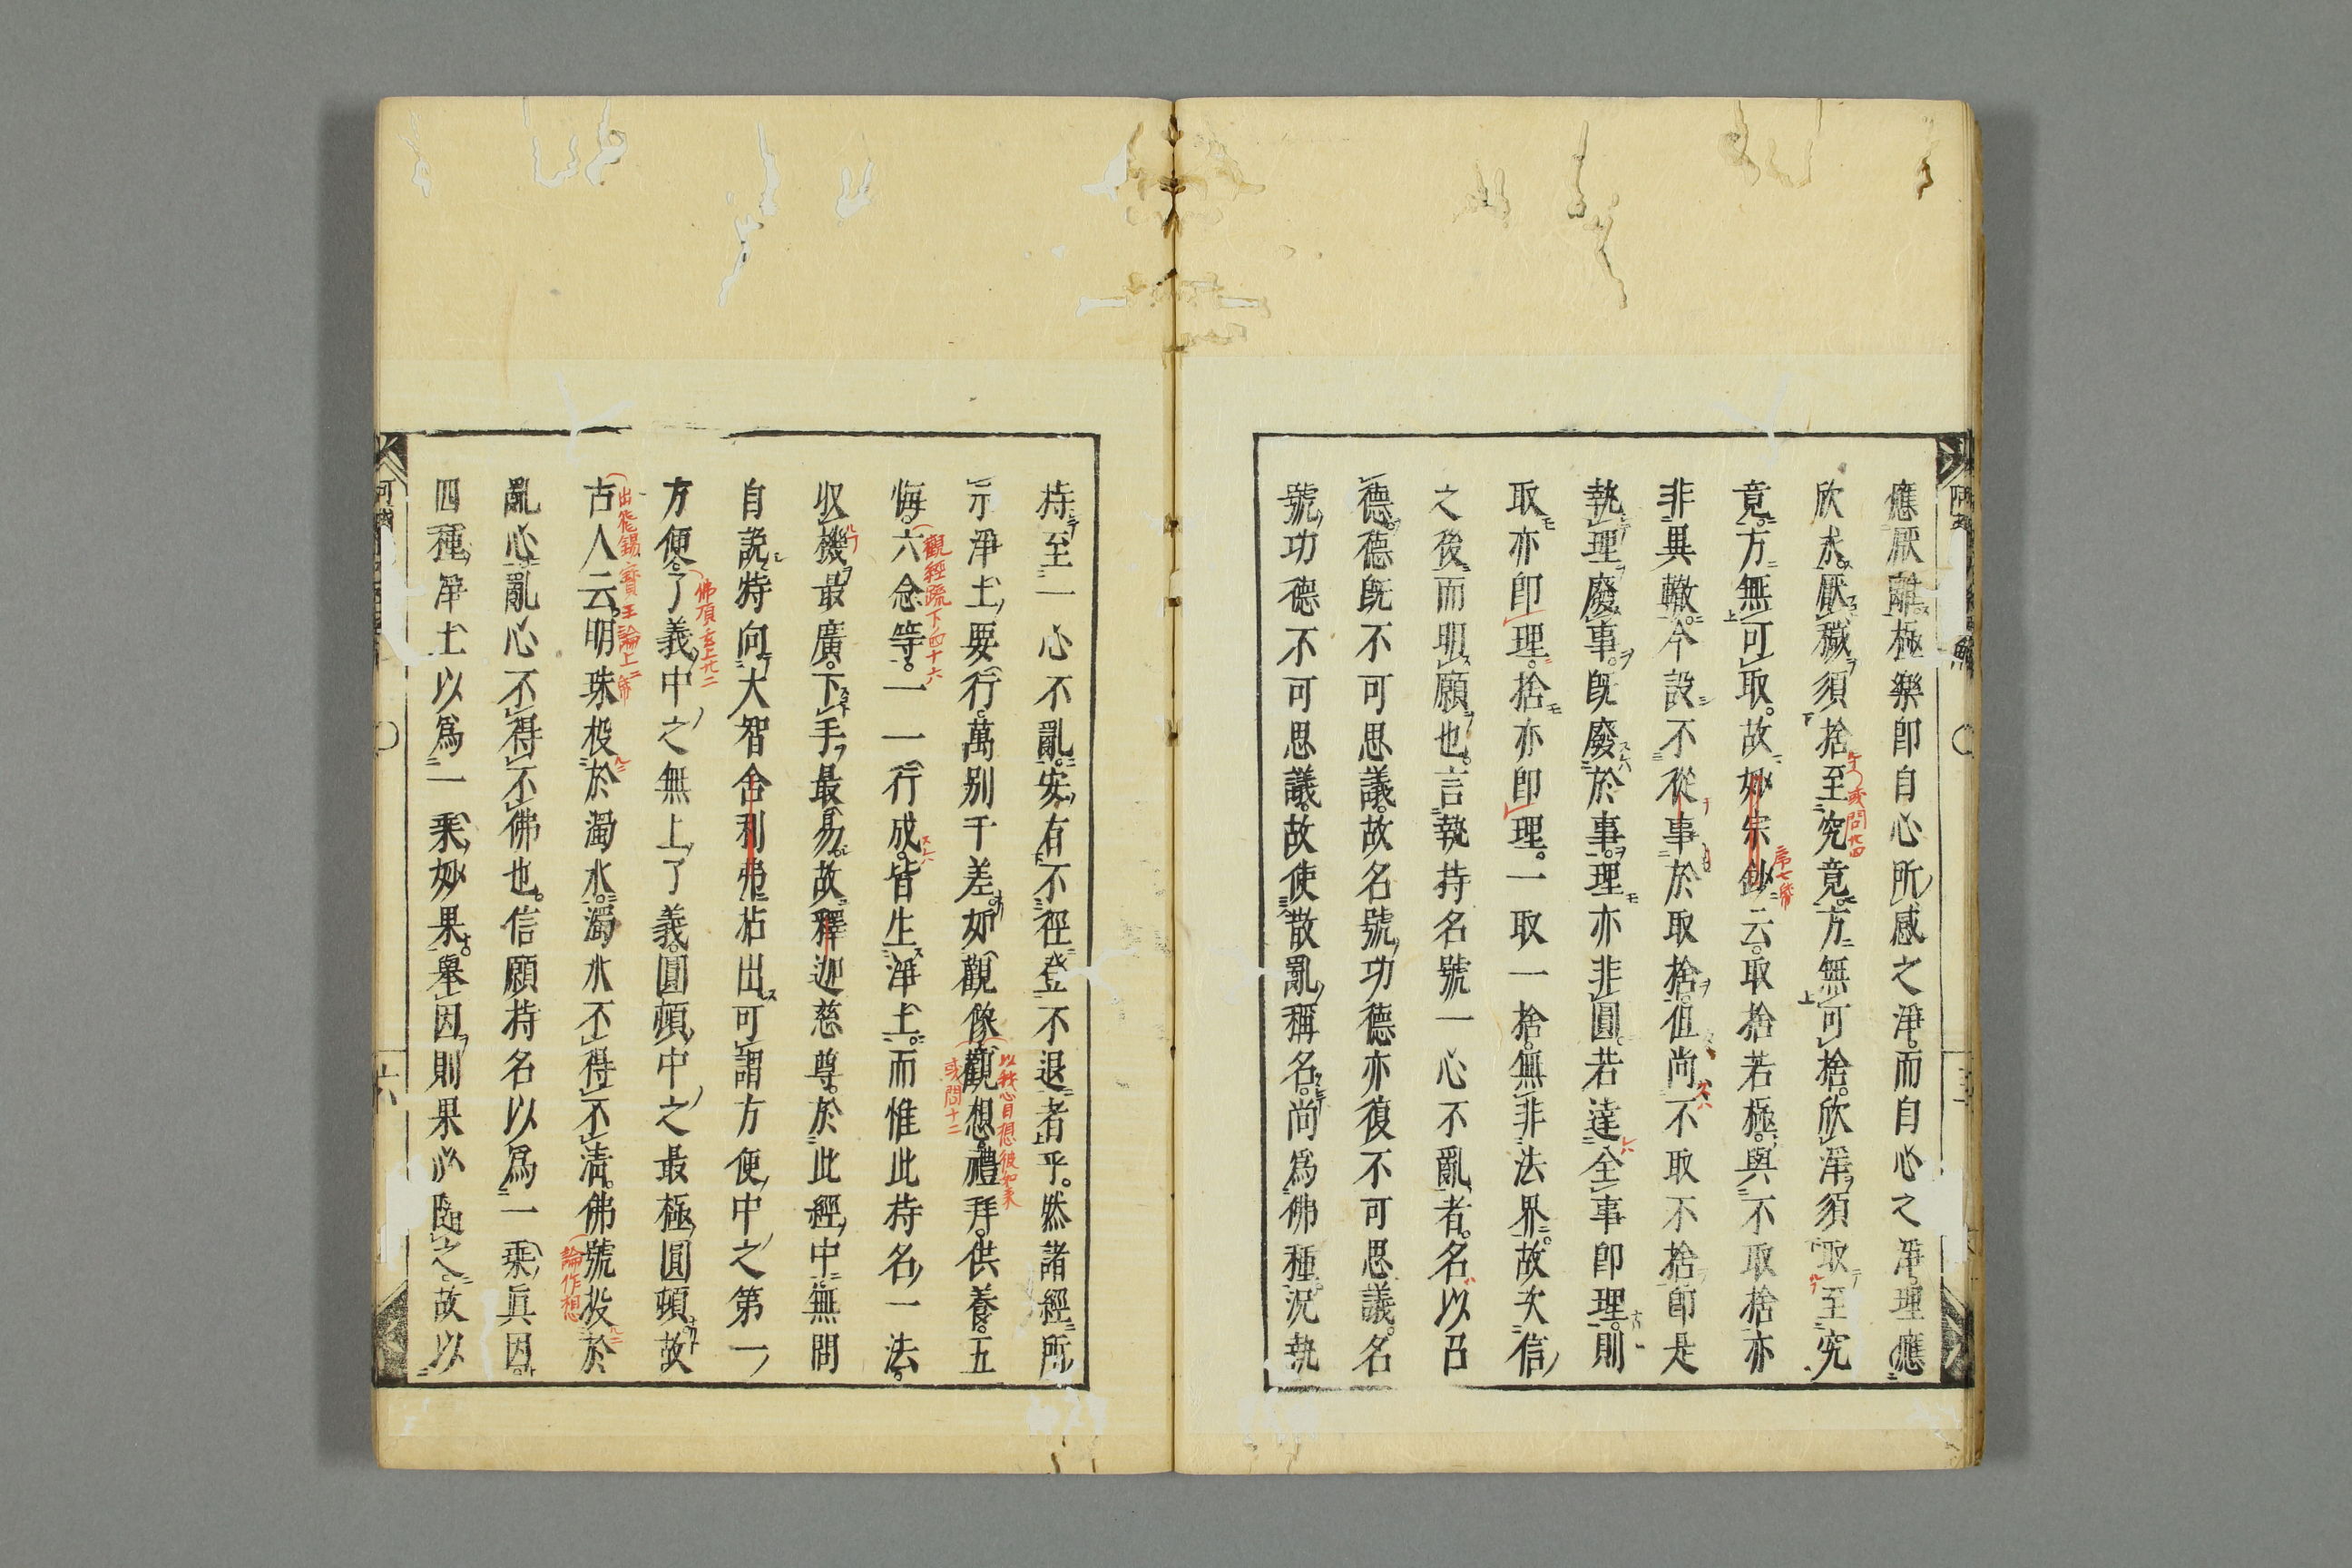 應厭離極樂卽自心所感之淨而自心之淨理應
欣求厭穢須捨至究竟方無可捨欣淨須取至究
竟方無可取故妙宗鈔云取捨若極與不取捨亦
非異轍今設不從事於取捨但尚不取不捨卽是
執理廢事旣廢於事理亦非圓若達全事卽理則
取亦卽理捨亦卽理一取一捨無非法界故次信
之後而明願也言執持名號一心不亂者名以召
德德旣不可思議故名號功德亦復不可思議名
號功德不可思議故使散亂稱名尚爲佛種況執
持至一心不亂安有不徑登不退者乎然諸經所
示淨土要行萬別千差如觀像觀想禮拜供養五
悔六念等一一行成皆生淨土而惟此持名一法
収機最廣下手最易故釋迦慈尊於此經中無問
自說特向大智舍利弗拈出可謂方便中之第一
方便了義中之無上了義圓頓中之最極圓頓故
古人云明珠投於濁水濁水不得不淸佛號投於
亂心亂心不得不佛也信願持名以爲一乘眞因
四種淨土以爲一乘妙果舉因則果必隨之故以
或問廿四
序七紙
以我心目想彼如來
或問十二
觀經疏下四十六
佛頂玄上廿二
出飛錫寶王論上二紙
論作想